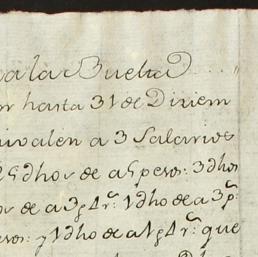 a la Buelta
hasta 31 de Diziem
ivalen a 3 Salarios
dhos de a 5 pesos: 3 dhos
de a 3 p 4 r.^s 1 dho de a 3 p.^s
esos: y 1 dho de a 1 p 4 r.^s que